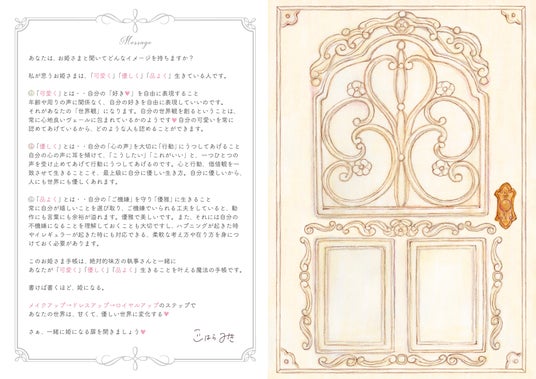 Message
あなたは、お姫さまと聞いてどんなイメージを持ちますか?
私が思うお姫さまは、「可愛く」「優しく」「品よく」生きている人です。
「可愛く」とは・・自分の「好き♥」を自由に表現すること
年齢や周りの声に関係なく、自分の好きを自由に表現していいのです。
それがあなたの「世界観」になります。自分の世界観を創るということは、
常に心地良いヴェールに包まれているかのようです♥自分の可愛いを常に
認めてあげているから、どのような人も認めることができます。
「優しく」とは・・自分の「心の声」を大切に「行動」にうつしてあげること
自分の心の声に耳を傾けて、「こうしたい」「これがいい」と、一つひとつの
声を受け止めてあげて行動にうつしてあげるのです。心と行動、価値観を一
致させて生きることこそ、最上級に自分に優しい生き方。自分に優しいから、
人にも世界にも優しくあれます。
「品よく」とは・・自分の「ご機嫌」を守り「優雅」に生きること
常に自分が嬉しいことを選び取り、ご機嫌でいられる工夫をしていると、動
作にも言葉にも余裕が溢れます。優雅で美しいです。また、それには自分の
不機嫌になることを理解しておくことも大切ですし、ハプニングが起きた時
やイレギュラーが起きた時にも対応できる、柔軟な考え方や在り方を身につ
けておく必要があります。
このお姫さま手帳は、絶対的味方の執事さんと一緒に
あなたが「可愛く」「優しく」「品よく」生きることを叶える魔法の手帳です。
書けば書くほど、姫になる。
メイクアップ→ドレスアップ→ロイヤルアップのステップで
あなたの世界は、甘くて、優しい世界に変化する♥
さぁ、一緒に姫になる扉を開きましょう♥
こはらみき